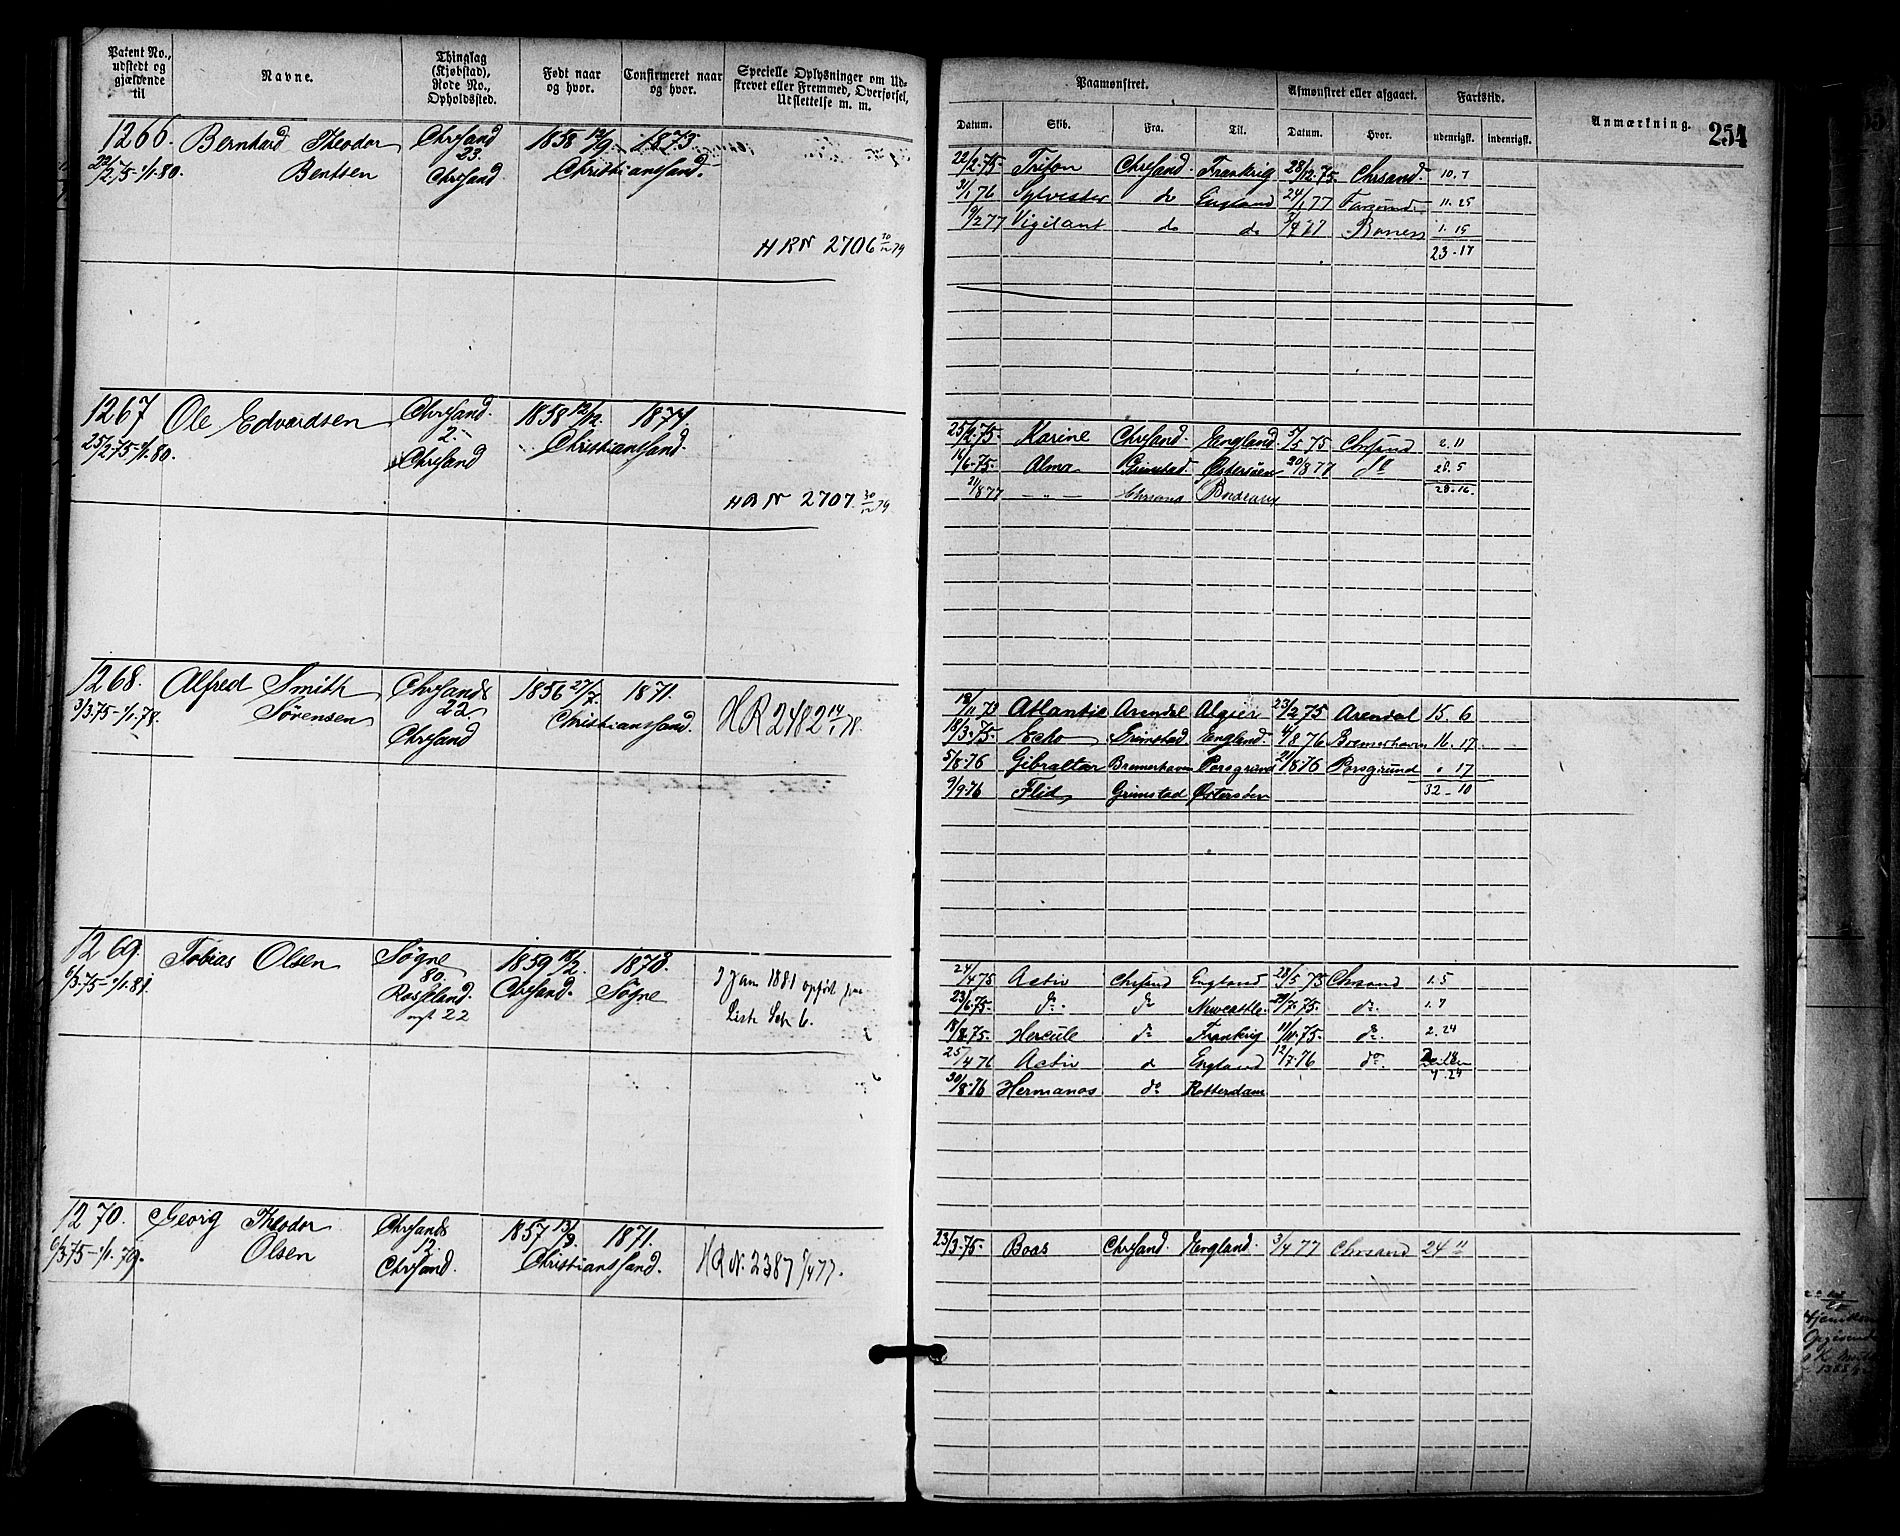 Patent No., udstedt og gjældende til
Navne.
Thinglag (Kjøbstad), Rode No., Opholdssted.
Født naar og hvor.
Confirmeret naar og hvor.
Specielle Oplysninger om Udskrevet eller Fremmed, Overførsel, Udslettelse m. m.
Paamønstret.
Afmønstret eller afgaaet.
Fartstid.
Anmærkning.
254
Datum. Skib. Fra. Til. Datum. Hvor. udenrigsk. indenrigsk.
1266. Bernhard Theodor Chrsand 1858 12/9 1873
22/2.75-1/1.80. Bentsen 23. Christianssand.
Chrsand
H R N 2706 30/12 79
22/2.75. Triton Chrsand. Frankrig 28/12.75. Chrsand. 10.7
31/1 76 Sylvester do England 24/1 77 Farsund 11.25
19/2 77 Vigilant do do 3/4 77 1.15
23.17
1267 Ole Edvardsen Chrsand. 1858 12/12. 1874.
25/2.75-1/1.80. 2. Christianssand.
Chrsand
H R N 2707. 30/12 79
25/2.75. Karine Chrsand. England. 5/5 75 Chrsund 2.11
16/6.75. Alma Grimstad Østersøen 20/8 77 do 28.5
21/8 77 — " — Chrsand Bordeaux 28.16.
1268. Alfred Smith Chrsands 1856 27/7. 1871.
3/3.75-1/1.78. Sørensen 22. Christianssand.
Chrsand
H R 2482 14/1 78.
Atlantic Arendal Algier 23/2 75 Arendal 15.6
18/3.75. Echo Grimstad England. 4/8 76 Bremerhavn 16.17
5/8.76 Gibraltar Bremerhavn Porsgrund 21/8.76 Porsgrund " 17
9/9.76 Flid Grimstad Østersøen 32-10
1269. Tobias Olsen Søgne 1859 18/2. 1873.
6/3.75-1/1.81. 80. Chrsand. Søgne
Rosseland.
22
3 Jan 1881 opført paa
Liste Litr 6.
24/4 75 Activ Chrsand England 28/5 75 Chrsand 1.5
23/6.75. do. do Newcastle 29/7.75. do. 1.7
18/8.75. Hercule do Frankrig 11/11.75. do. 2.24
25/4 76 Activ d England 12/7.76 do. 2.18
30/8.76 Hermanos do Rotterdam
1270. Georg Theodor Chrsands 1857 13/3. 1871.
6/3.75-1/1.79. Olsen 12. Christianssand.
Chrsand.
H R N. 2387 9/4 77.
23/3.75. Boas Chrsand. England. 3/4 77 Chrsand 24 11